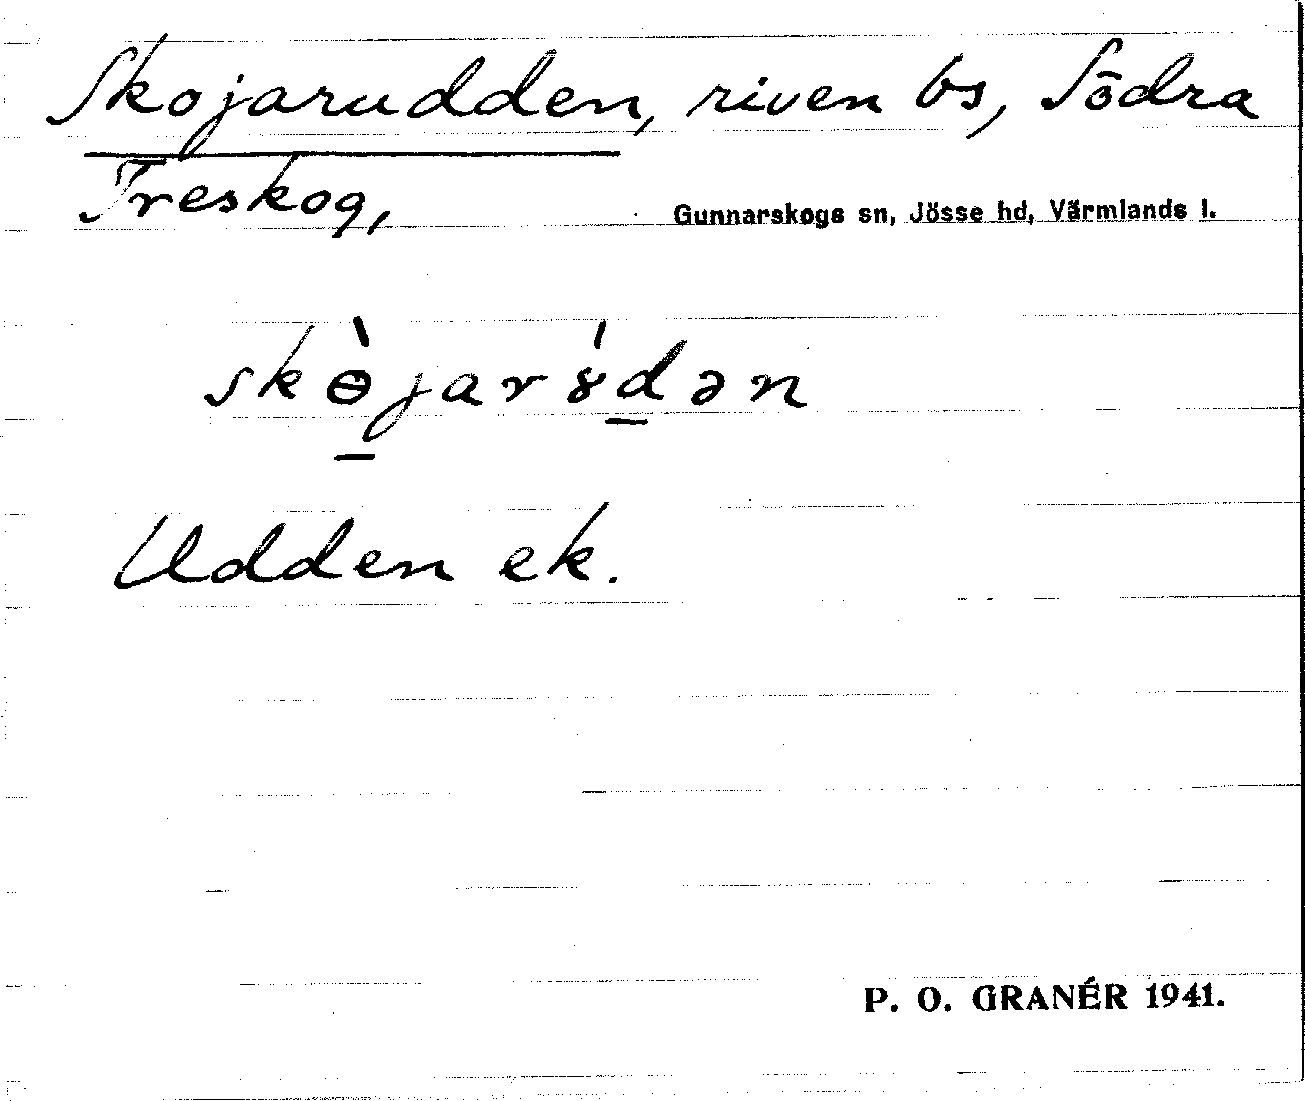 Skojarudden, riven bs, Södra
Treskog,
Gunnarskogs sn, Jösse hd, Värmlands l.
skɵ̀jarɤ́dən
Udden ek.
P. O. GRANÉR 1941.